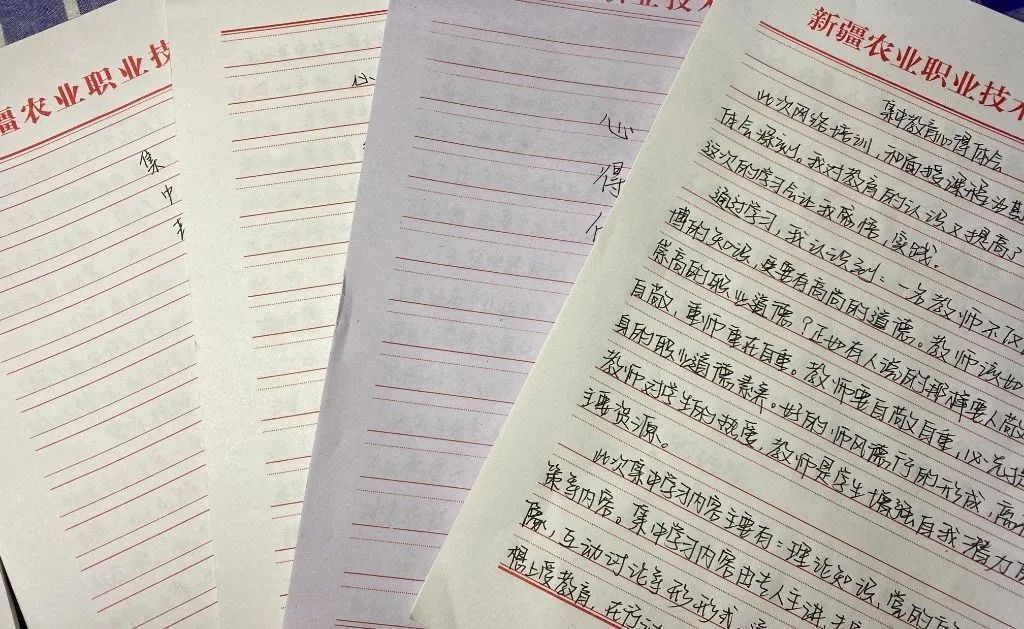 疆农业职业技
集
中
心
业技术
心
得
新疆农业职业技术
集中教育心得体会
此次网络培训,和面授课程为期
体会深刻。我对教育的认识又提高了
这次的学习会让我感悟,实践。
通过学习,我认识到:一名教师不仅
博的知识,更要有高尚的道德。教师该如
崇高的职业道德?正如有人说的那样要人敬
自敬,重师重在自重。教师要自敬自重,必先
身的职业道德素养。好的师风德行的形成,离
教师对学生的热爱,教师是学生
主要资源。
此次集中学习内容主要有:理论知识,党的
策等内容。集中学习内容由专人主讲,
互动讨论等形式
想上受教育,在行